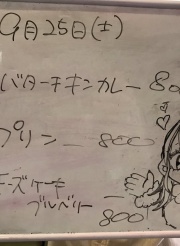 9月25日(土)
バターチキンカレー 80
プリン – 800
チーズケーキ
ブルベリー
800